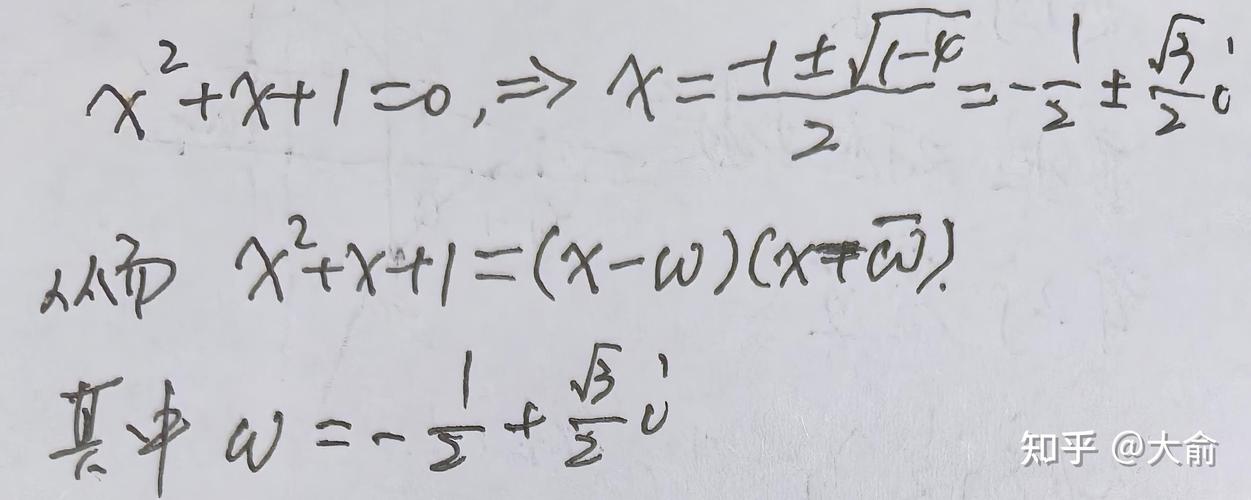 x²+x+1=0, ⇒ x = (-1±√(1-4))/2 = -1/2 ± (√3/2)i
从而 x²+x+1=(x-ω)(x-ω̄).
其中 ω = -1/2 + (√3/2)i
知乎 @大俞